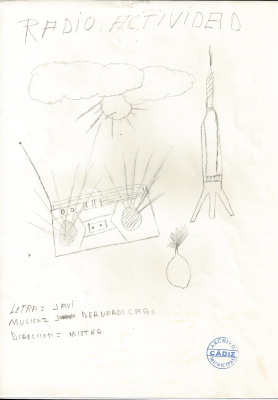 RADIO ACTIVIDAD
LETRA = JAVI
MUCICA = BERNARDO CARO
DIRECCION = MISTER
ARCHIVO
CÁDIZ
MUNICIPAL